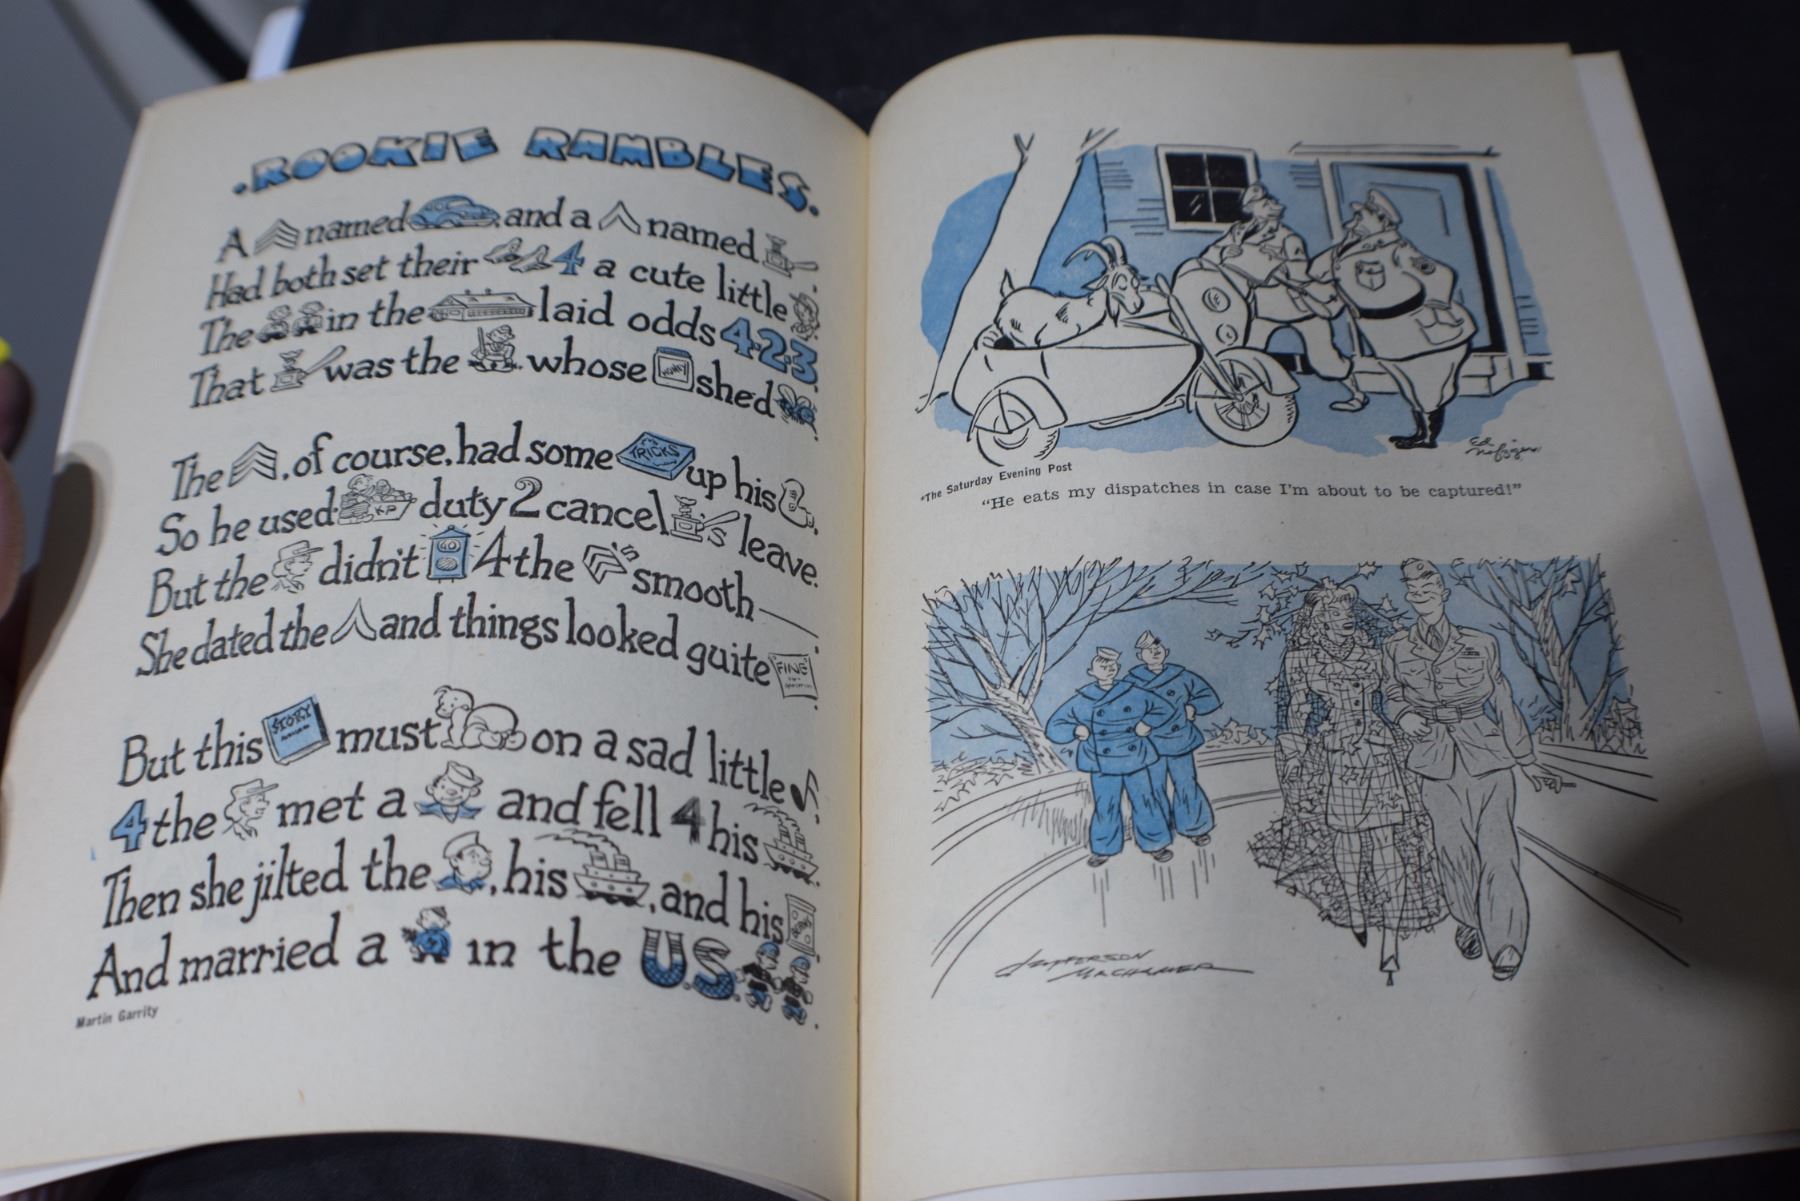 ROOKIE RAMBLES.
A named and a named
Had both set their 4 a cute little
The in the laid odds 4-2-3
That was the whose shed
The , of course, had some TRICKS up his
So he used KP duty 2 cancel 's leave.
But the didn't GO 4 the 's smooth
She dated the and things looked quite FINE
But this STORY must on a sad little
4 the met a and fell 4 his
Then she jilted the , his , and his
And married a in the U.S.
Martin Garrity
*The Saturday Evening Post
"He eats my dispatches in case I'm about to be captured!"
JEFFERSON
MACHAMER